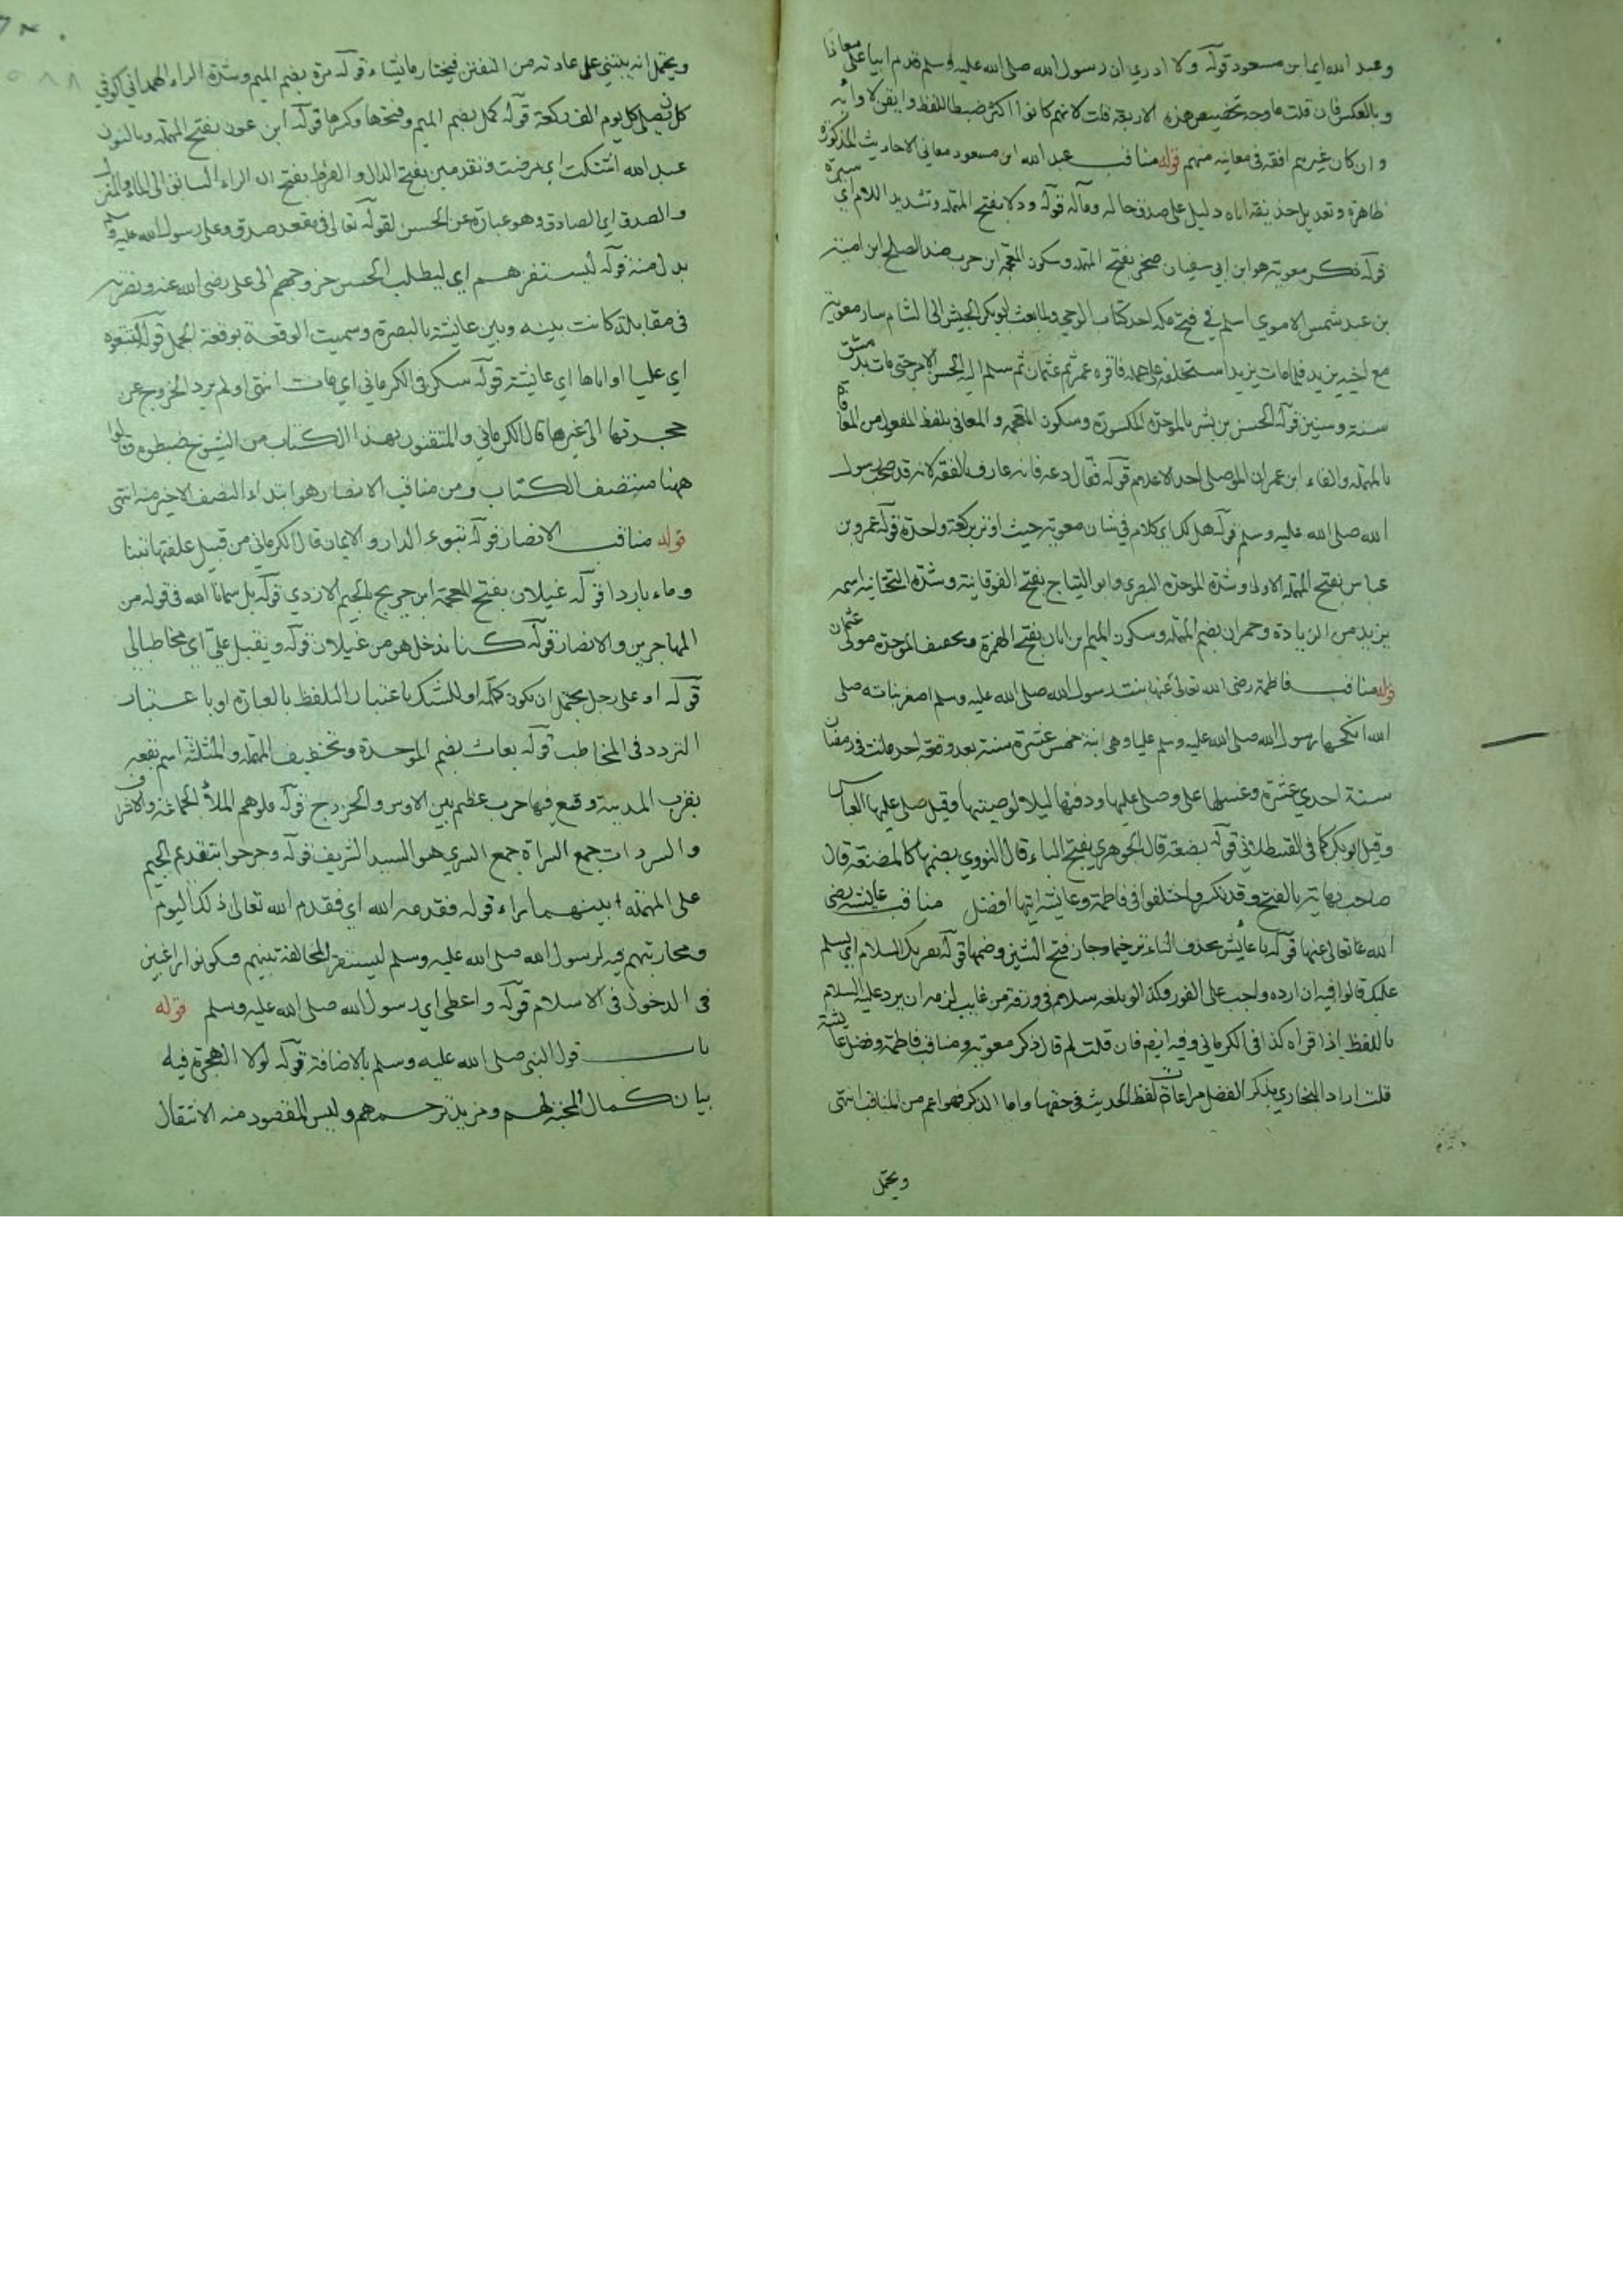 وعبد الله اي ابن مسعود قوله ولا ادري ان رسول الله صلى الله عليه وسلم قدم ابيا على معاذا
وبالعكس فان قلت ما وجه تخصيص هذه الاربعة قلت لانهم كانوا اكثر ضبطا للفظ واتقن لادائه
وان كان غيرهم افقه في معانيه منهم قوله مناقب عبد الله ابن مسعود معاني الاحاديث المذكورة
ظاهرة وتعديل حذيفة اياه دليل على صدق حاله ومآله قوله ودلا بفتح المهملة وتشديد اللام اي سيرة
قوله ذكر معوية هو ابن ابي سفيان صخر بفتح المهملة وسكون المعجمة ابن حرب ضد الصلح ابن امية
بن عبد شمس الاموي اسلم في فتح مكة احد كتاب الوحي ولما بعث ابو بكر الجيش الى الشام سار معوية
مع اخيه يزيد فلما مات يزيد استخلفه على عمله فاقره عمر ثم عثمان ثم سلم اليه الحسن الامر حتى مات بدمشق
سنة وستين قوله الحسن بن بشر بالموحدة المكسورة وسكون المعجمة والمعافى بلفظ المفعول من المعافاة
بالمهملة والفاء ابن عمران الموصلي احد الاعلام قوله فقال دعه فانه عارف بالفقه لانه قد صحب رسول
الله صلى الله عليه وسلم قوله هل لك اي كلام في شان معوية حيث اوتر بركعة واحدة قوله عمرو بن
عباس بفتح المهملة الاولى وشدة الموحدة البصري وابو التياح بفتح الفوقانية وشدة التحتانية اسمه
يزيد من الزيادة وحمران بضم المهملة وسكون الميم ابن ابان بفتح الهمزة وتخفيف الموحدة مولى عثمان
قوله مناقب فاطمة رضي الله تعالى عنها بنت رسول الله صلى الله عليه وسلم اصغر بناته صلى
الله انكحها رسول الله صلى الله عليه وسلم عليا وهي ابنة خمس عشرة سنة بعد وقعة احد ماتت في رمضان
سنة احدي عشرة وغسلها علي وصلى عليها ودفنها ليلا لوصيتها وقيل صلى عليها العباس
وقيل ابو بكر كما في القسطلاني قوله بضعة قال الجوهري بفتح الباء قال النووي بضمها كالمضغة قال
صاحب نهاية بالفتح وقد تكسر واختلفوا في فاطمة وعايشة ايتها افضل مناقب عايشة رضي
الله تعالى عنها قوله يا عائش بحذف التاء ترخيما وجاز فتح الشين وضمها قوله يقريك السلام اي يسلم
عليك قالوا فيه ان رده واجب على الفور وكذا لو بلغه سلام في ورقة من غايب لزمه ان يرد عليه السلام
باللفظ اذا قراه كذا في الكرماني وفيه ايضا فان قلت لم قال ذكر معوية ومناقب فاطمة وفضل عايشة
قلت اراد البخاري بذكر الفضل مراعاة لفظ الحديث في حقها واما الذكر فهو اعم من المناقب انتهى
ويحتمل
ويحتمل انه يبتني على عادته من التفنن فيختار ما يشاء قوله مرة بضم الميم وشدة الراء الهمداني كوفي
كان يصلي كل يوم الف ركعة قوله كمل بضم الميم وفتحها وكسرها قوله ابن عون بفتح المهملة وبالنون
عبد الله اشتكت اي مرضت وتقدمين بفتح الدال والفرط بفتح الراء السابق الى الماء والمنزل
والصدق اي الصادق وهو عبارة عن الحسن لقوله تعالى في مقعد صدق وعلى رسول الله عليه وسلم
بدل منه قوله ليستنفرهم اي ليطلب الحسن خروجهم الى علي رضي الله عنه ونصرته
في مقابلة كانت بينه وبين عايشة بالبصرة وسميت الوقعة بوقعة الجمل قوله لتتبعوه
اي عليا او اياها اي عايشة قوله سكن في الكرماني اي مات انتهى او لم يرد الخروج عن
حجرتها الى غيرها قال الكرماني والمتقنون بهذا الكتاب من الشيوخ ضبطوه وقالوا
ههنا منتصف الكتاب ومن مناقب الانصار هو ابتداء النصف الاخير منه انتهى
قوله مناقب الانصار قوله تبوءا الدار والايمان قال الكرماني من قبيل علفتها تبنا
وماء باردا قوله غيلان بفتح المعجمة ابن جرير بالجيم الازدي قوله بل سمانا الله في قوله من
المهاجرين والانصار قوله كنا ندخل هو من غيلان قوله ويقبل علي اي مخاطبا لي
قوله او على رجل يحتمل ان يكون كلمة او للشك باعتبار التلفظ بالعبارة او باعتبار
التردد في المخاطب قوله بعاث بضم الموحدة وتخفيف المهملة والمثلثة اسم بقعة
بقرب المدينة وقع فيها حرب عظيم بين الاوس والخزرج قوله ملوهم الملأ الجماعة والاشراف
والسروات جمع السراة جمع السري هو السيد الشريف قوله وجرحوا بتقديم الجيم
على المهملة بينهما راء قوله فقدمه الله اي فقدم الله تعالى ذلك اليوم
ومحاربتهم فيه لرسول الله صلى الله عليه وسلم ليستقر المخالفة بينهم فيكونوا راغبين
في الدخول في الاسلام قوله واعطى اي رسول الله صلى الله عليه وسلم قوله
باب قول النبي صلى الله عليه وسلم بالاضافة قوله لولا الهجرة فيه
بيان كمال المحبة لهم ومزيد ترحمهم وليس المقصود منه الانتقال